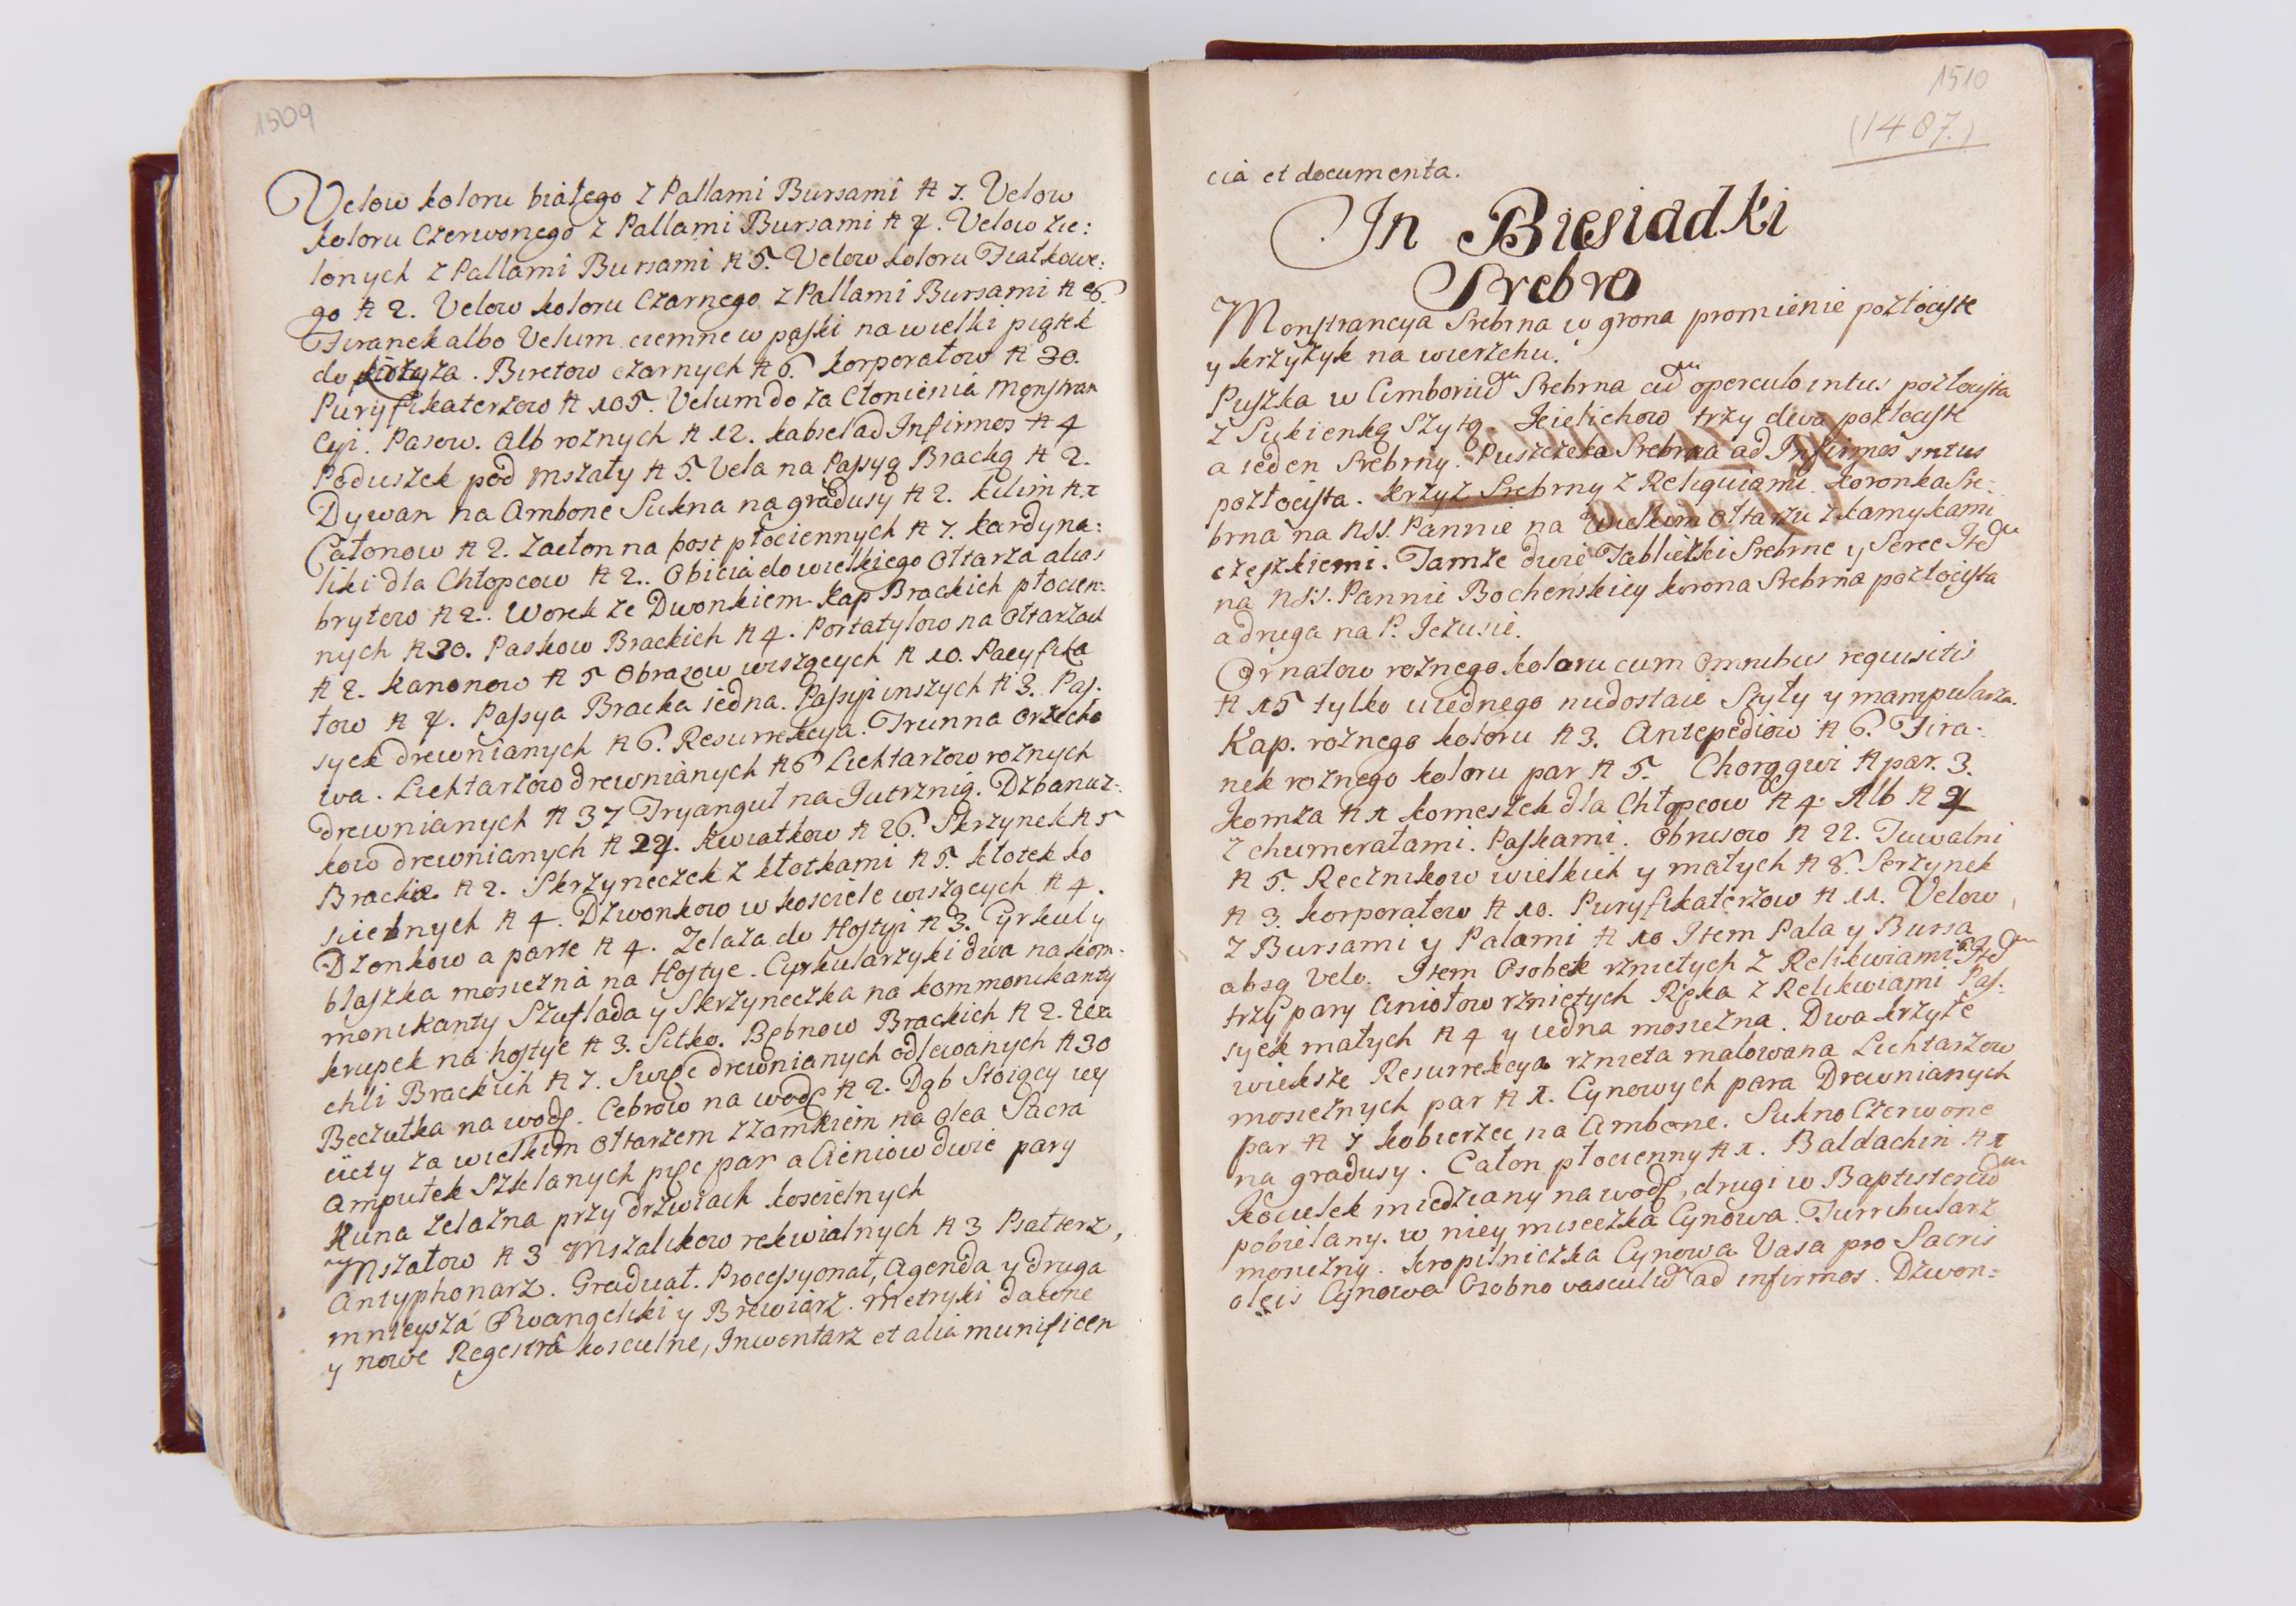 1509
Velow koloru białego z Pallami Bursami N 7. Velow
koloru Czerwonego z Pallami Bursami N 4. Velow zie:
lonych z Pallami Bursami N 5. Velow koloru Fiałkowe:
go N 2. Velow koloru Czarnego z Pallami Bursami N 6.
Firanek albo Velum ciemne w paski na wielki piątek
do . Biretow czarnych N 6. korporałow N 30.
Puryfikaterzow N 105. Velum do za Cłonienia Monstran
Cyi. Pasow. Alb roznych N 12. kabsel ad Infirmos N 4
Poduszek pod Mszały N 5. Vela na Passyą Bracką N 2.
Dywan na Ambone Sukna na gradusy N 2. kilim N 1
Całonow N 2. Zacłon na post płociennych N 7. kardyna:
liki dla Chłopcow N 2. Obicia do wielkiego Ołtarza alias
brytow N 2. Worek ze Dwonkiem kap Brackich płocien:
nych N 30. Paskow Brackich N 4. Portatylow na Ołtarzach
N 2. kanonow N 5 Obrazow wiszących N 10. Pacyfika
łow N 4. Passya Bracka iedna. Passyi inszych N 3. Pas:
syek drewnianych N 6. Resurrekcya. Trunna Orzecho
wa. Lichtarzow drewnianych N 6 Lichtarzow roznych
drewnianych N 37 Tryanguł na Jutrznią. Dzbanusz:
kow drewnianych N 24. kwiatkow N 26. Skrzynek N 5
Brackie N 2. Skrzyneczek z kłotkami N 5. kłotek ko
scielnych N 4. Dzwonkow w kosciele wiszących N 4.
Dzonkow a parte N 4. Zelaza do Hostyi N 3. Cyrkuły
blaszka mosiezna na Hostye. Cyrkularzyki dwa na kom:
monikanty Szuflada y Skrzyneczka na kommonikanty
krupek na hostye N 3. Sitko. Bębnow Brackich N 2.
chli Brackich N 7. Swiec drewnianych odlewanych N 30
Beczułka na wodę. Cebrow na wodę N 2. Dąb Stoiący wy
cięty za wielkim Ołtarzem z zamkiem na Olea Sacra
Ampułek Szklanych pięc par a Cieniow dwie pary
Kuna zelazna przy drzwiach koscielnych
Mszałow N 3 Mszalikow rekwialnych N 3 Psałterz,
Antyphonarz. Graduał. Processyonał, Agenda y druga
mnieysza Ewangeliki y Brewiarz. Metryki dawne
y nowe Regestra koscielne, Inwentarz et alia munificen
1510
(1487.)
cia et documenta.
In Biesiadki
Srebro
Monstrancya Srebrna w grona promienie pozłociste
y krzyżyk na wierzchu.
Puszka w Cimboriū Srebrna cū operculo intus pozłocista
z Sukienką Szytą. Kielichow trzy dwa pozłociste
a ieden Srebrny. Puszczka Srebrna ad Infirmos intus
pozłocista. krzyż Srebrny z Reliquiami. koronka Sre:
brna na NSS. Pannie na Wielkim Ołtarzu z kamykami
czeskiemi. Tamze dwie Tabliczki Srebrne y Serce Itē
na NSS. Pannie Bochenskiey korona Srebrna pozłocista
a druga na P. Jezusie.
Ornatow roznego koloru cum omnibus requisitis
N 15 tylko u iednego niedostaie Stuły y manipularza.
Kap. roznego koloru N 3. Antepediow N 6. Fira:
nek roznego koloru par N 5. Chorągwi N par. 3.
komza N 1 komeszek dla Chłopcow N 4. Alb N 4
z chumerałami. Paskami. Obrusow N 22. Tuwalni
N 5. Recznikow wielkich y małych N 8. Serzynek
N 3. korporałow N 10. Puryfikaterzow N 11. Velow
z Bursami y Palami N 10 Item Pala y Bursa
absq velo. Item Osobek rznietych z Relikwiami N 2 Itē
trzy pary Aniołow rznietych Ręka z Relikwiami Pas:
syek małych N 4 y iedna mosiezna. Dwa krzyże
wieksze Resurrekcya rznieta malowana Lichtarzow
mosieznych par N 1. Cynowych para Drewnianych
par N 7 kobierzec na Ambone. Sukno Czerwone
na gradusy. Całon płocienny N 1. Baldachin N 1
kociełek miedziany na wodę, drugi w Baptisteriū
pobielany. w niey miseczka Cynowa. Turribularz
mosiezny. kropilniczka Cynowa Vasa pro Sacris
oleis Cynowa Osobno vasculū ad infirmos. Dzwon: